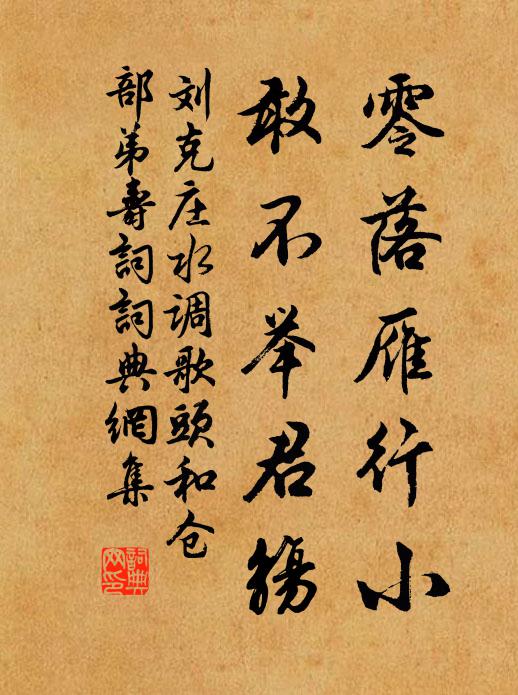 零落雁行小
敢不举君觞
刘克庄水调歌头和仓
部弟寿詞詞典網集
詞典
网印